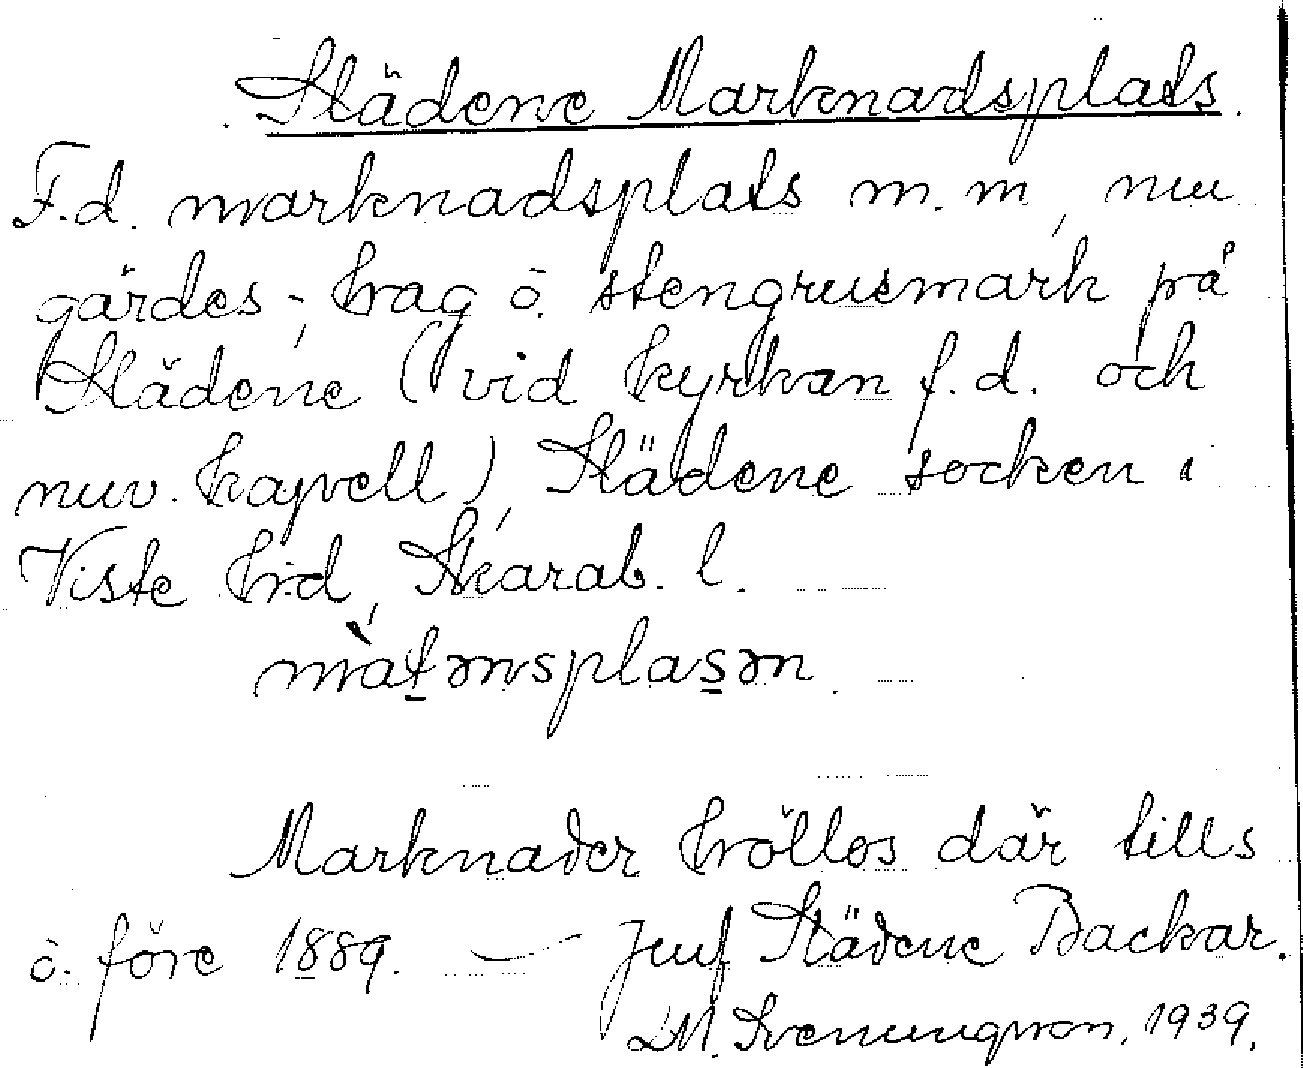 Slädene Marknadsplats.
F.d. marknadsplats m.m, nu
gärdes-, hag o. stengrusmark på
Slädene (vid kyrkan f.d. och
nuv. kapell), Slädene socken i
Viste hrd, Skarab. l.
màt̠ənsplas̠ən.
Marknader höllos där tills
o. före 1889. — Jmf Slädene Backar.
LM. Svenungsson. 1939.